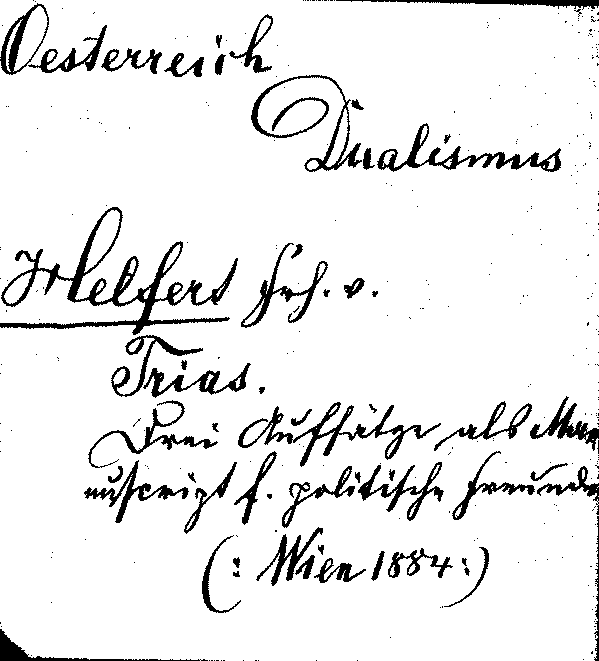 Oesterreich
Dualismus
Helfert Frh. v.
Trias.
Drei Aufsätze als Ma-
nuscript f. politische Freunde
(: Wien 1884 :)